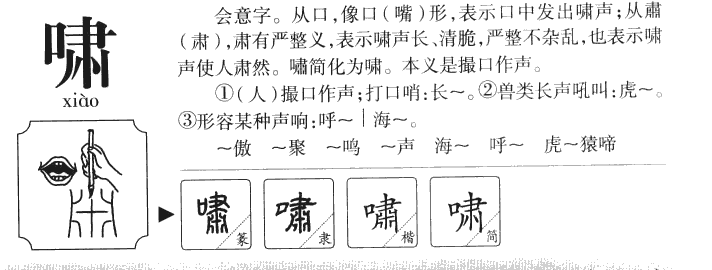 啸
xiào
会意字。从口,像口(嘴)形,表示口中发出啸声;从肅
(肃),肃有严整义,表示啸声长、清脆,严整不杂乱,也表示啸
声使人肃然。嘯简化为啸。本义是撮口作声。
①(人)撮口作声;打口哨:长～。②兽类长声吼叫:虎～。
③形容某种声响:呼～｜海～。
～傲 ～聚 ～鸣 ～声 海～ 呼～ 虎～猿啼
嘯篆 嘯隶 嘯楷 啸简